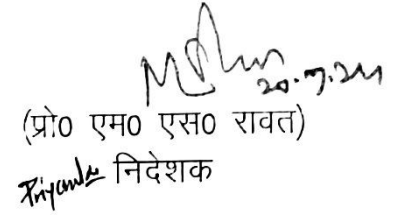 20.7.24
(प्रो0 एम0 एस0 रावत)
Priyanka निदेशक